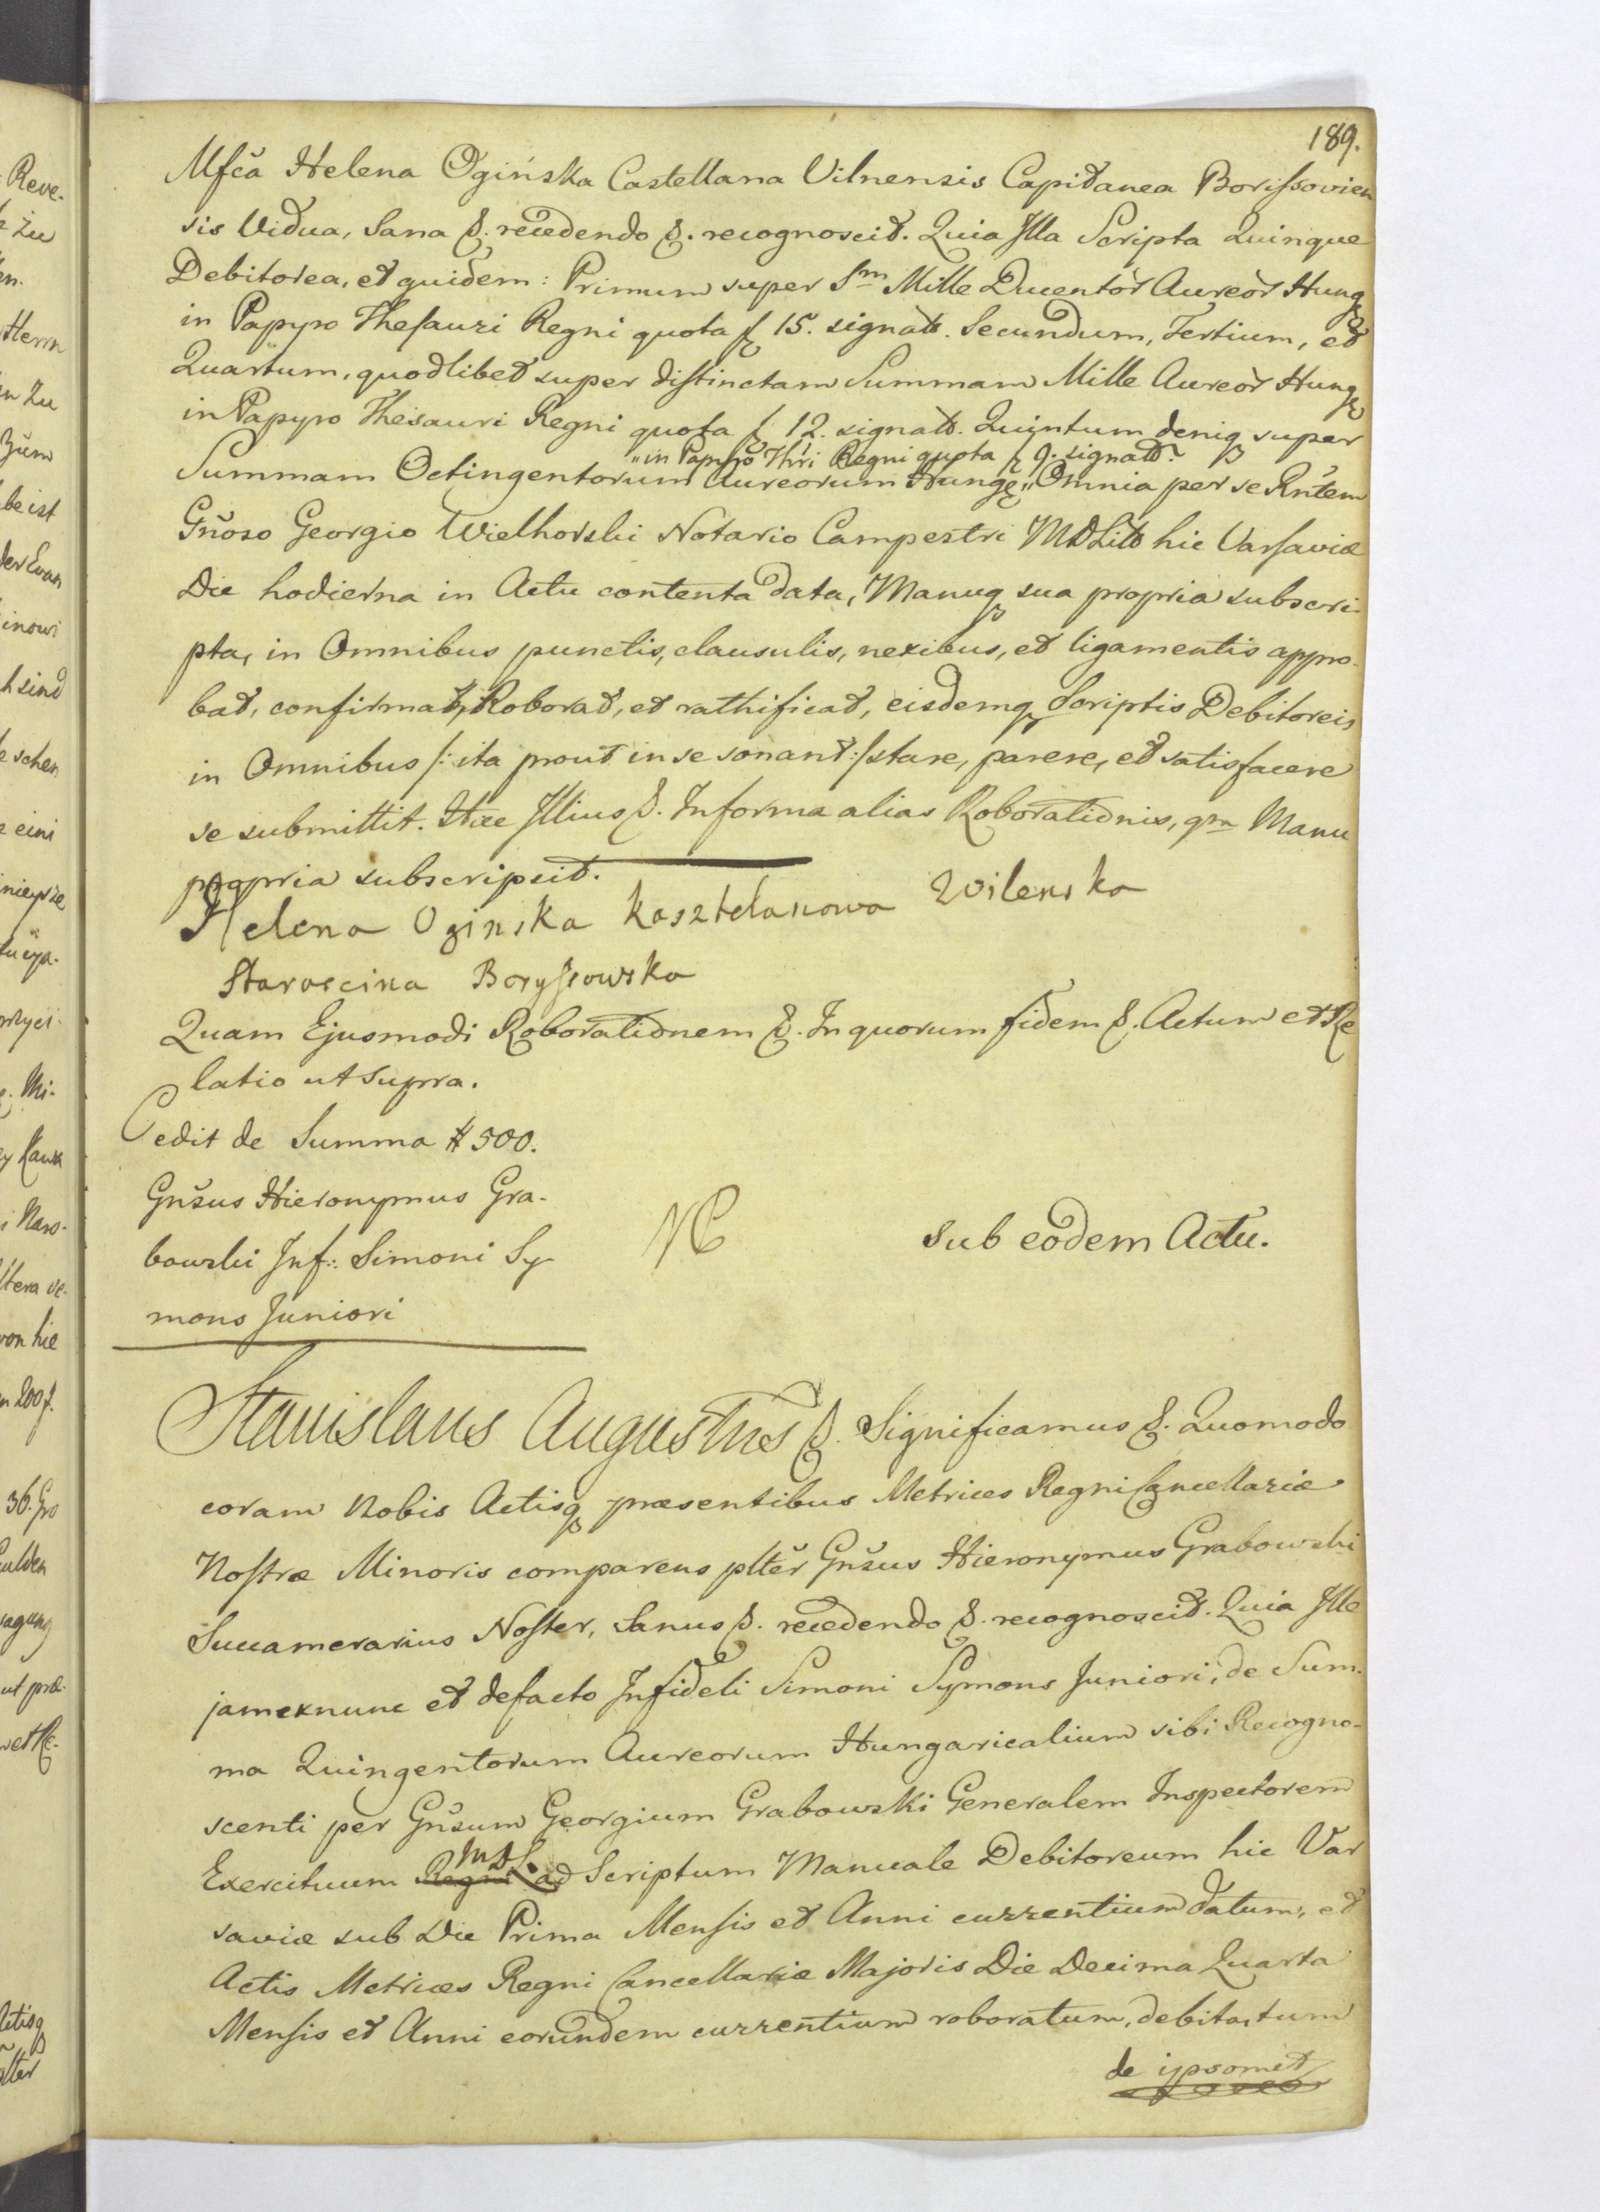 189.
Mfča Helena Ogińska Castellana Vilnensis Capitanea Borissovien
sis Vidua, Sana &. recedendo &. recognoscit. Quia Illa Scripta Quinque
Debitorea, et quidem: Primum super Sm Mille Ducentor̃ Aureor̃ Hung
in Papyro Thesauri Regni quota f 15. signat. Secundum, Tertium, et
Quartum, quodlibet super distinctam Summam Mille Aureor̃ Hung
in Papyro Thesauri Regni quota f 12. signat. Quintum deniq super
"in Papyro Thri Regni quota f 9. signat.
Summam Octingentorum Aureorum Hung" Omnia per se Rñtem
Gñoso Georgio Wielhorski Notario Campestri MDLitt hic Varsaviæ
Die hodierna in Actu contenta data, Manuq sua propria subscri-
pta, in Omnibus punctis, clausulis, nexibus, et ligamentis appro-
bat, confirmat, Roborat, et rathificat, eisdemq Scriptis Debitoreis
in Omnibus /: ita prout in se sonant :/ stare, parere, et satisfacere
se submittit. Hæc Illius &. In forma alias Roborationis, qm Manu
propria subscripsit.
Helena Oginska Kasztelanowa Wilenska
Staroscina Boryssowska
Quam Ejusmodi Roborationem &. In quorum fidem &. Actum et Re
latio ut supra.
Cedit de Summa # 500.
Gñsus Hieronymus Gra-
bowski Inf: Simoni Sy
mons Juniori
sub eodem Actu.
Stanislaus Augustus &. Significamus &. Quomodo
coram Nobis Actisq præsentibus Metrices Regni Cancellariæ
Nostræ Minoris comparens pltĕr Gñsus Hieronymus Grabowski
Succamerarius Noster, Sanus &. recedendo &. recognoscit. Quia Ille
jamexnunc et defacto Infideli Simoni Symons Juniori, de Sum-
ma Quingentorum Aureorum Hungaricalium sibi Recogno-
scenti per Gñsum Georgium Grabowski Generalem Inspectorem
MDL.
Exercituum Regni ad Scriptum Manuale Debitoreum hic Var
saviæ sub Die Prima Mensis et Anni currentium datum, et
Actis Metrices Regni Cancellariæ Majoris Die Decima Quarta
Mensis et Anni eorundem currentium roboratum, debita, tum
de ipsomet